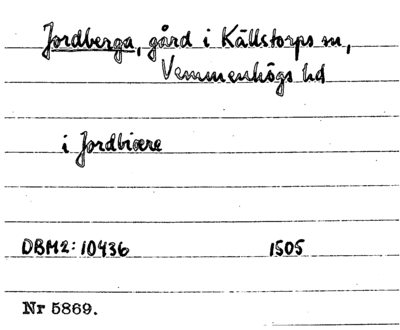 Jordberga, gård i Källstorps sn,
Vemmenhögs hd
i Jordbiære
DBM2: 10436 1505
Nr 5869.